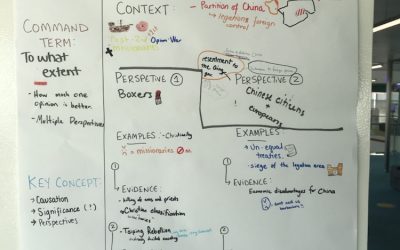 COMMAND
TERM:
To what
extent
- How much one
opinion is better
- Multiple Perspectives
KEY CONCEPT:
→ Causation
→ Significance (!)
→ Perspectives
CONTEXT:
Post - 2nd Opium War
missionaries
- Partition of China
↳ legations foreign
control
resentment to
PERSPETIVE 1
Boxers
EXAMPLES: - Christianity
= missionaries
1 EVIDENCE:
- killing of nuns and priests
→ Christian classification
2 Taiping Rebellion
PERSPECTIVE 2
Chinese citizens
+
europeans
EXAMPLES:
→ Un-equal
treaties
→ siege of the legation area
EVIDENCE:
Economic disadvantages for China
2